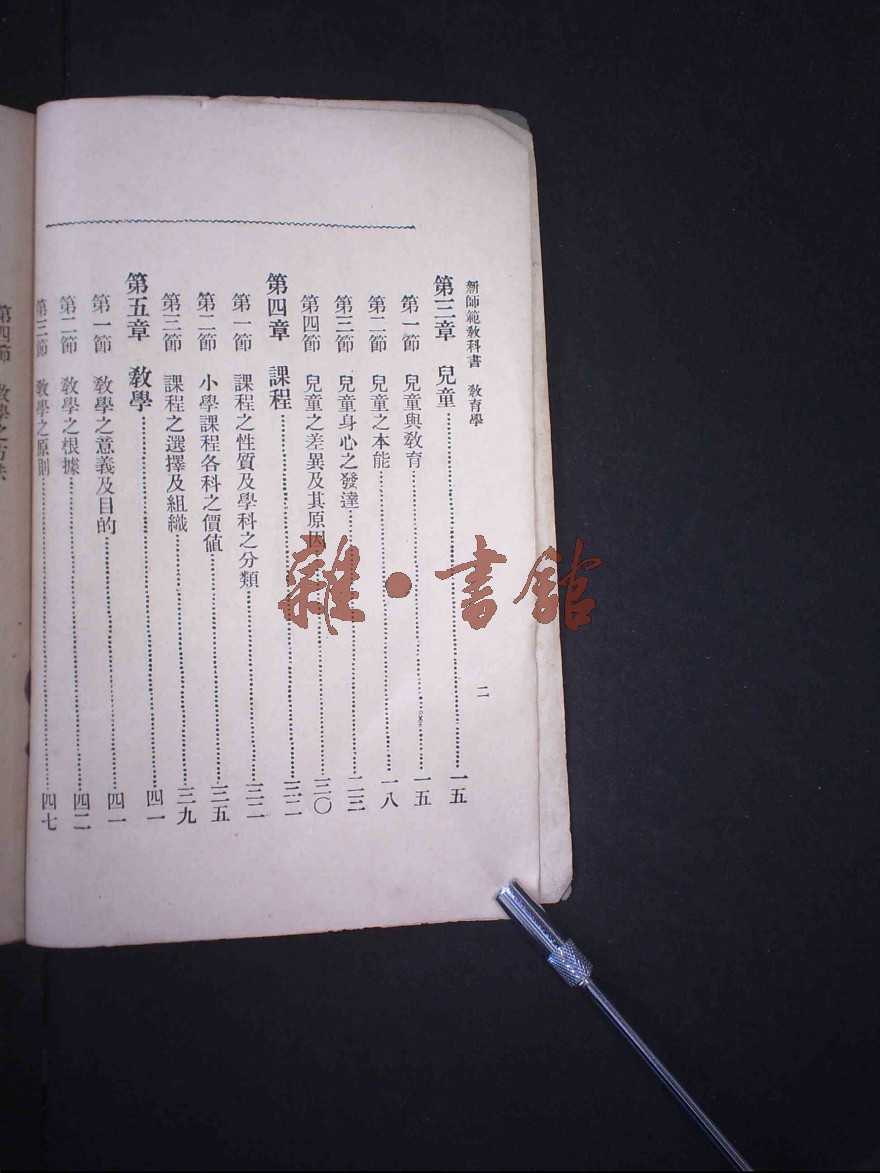 新師範教科書　教育學
二
第三章　兒童……一五
第一節　兒童與教育……一五
第二節　兒童之本能……一八
第三節　兒童身心之發達……二三
第四節　兒童之差異及其原因……三〇
第四章　課程……三二
第一節　課程之性質及學科之分類……三二
第二節　小學課程各科之價值……三五
第三節　課程之選擇及組織……三九
第五章　教學……四一
第一節　教學之意義及目的……四一
第二節　教學之根據……四二
第三節　教學之原則……四七
第四節　教學之方法
雜·書館